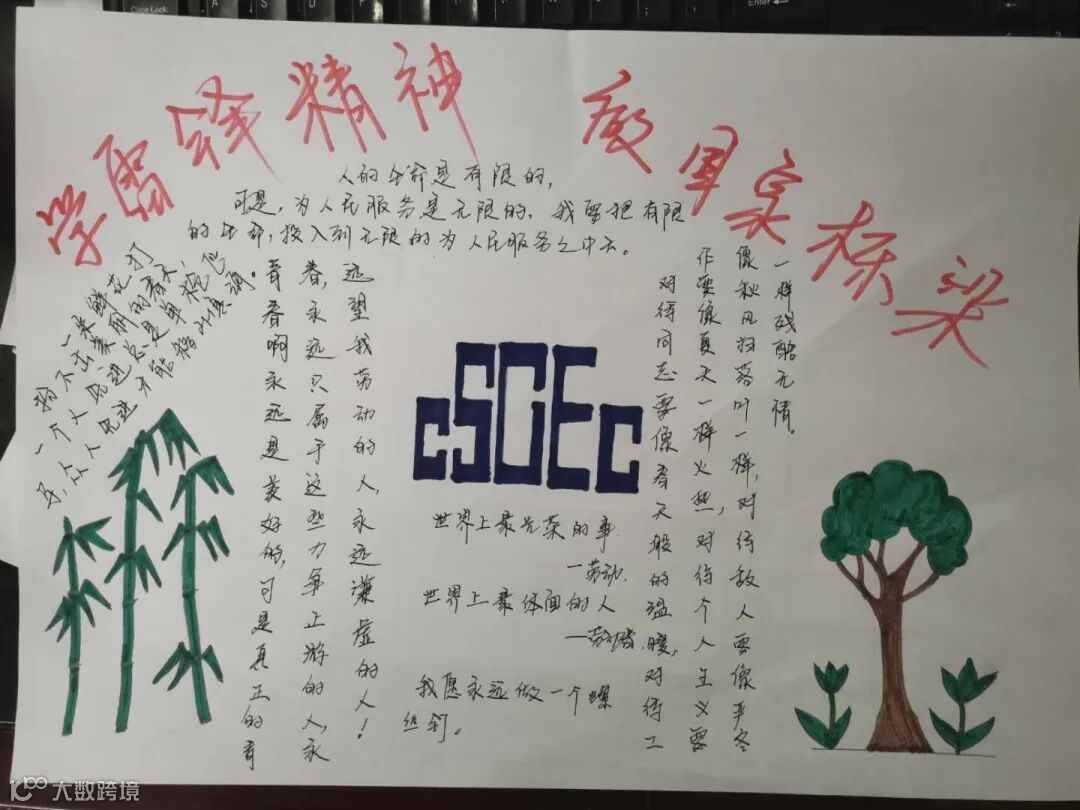 Caps Lock
A
S
D
Enter
学雷锋精神 做国家栋梁
人的生命是有限的,
可是,为人民服务是无限的,我要把有限
的生命,投入到无限的为人民服务之中去。
一朵鲜花打
扮不出美丽的春天,
一个人先进总是单枪匹
马,众人先进才能移山填海。
青春啊永远是美好的,可是真正的青
春,永远只属于这些力争上游的人,永
远望我劳动的人,永远谦虚的人!
cSCEc
世界上最光荣的事
—劳动.
世界上最体面的人
—劳动者.
我愿永远做一个螺
丝钉。
对待同志要像春天般的温暖,对待工
作要像夏天一样火热,对待个人主义要
像秋风扫落叶一样,对待敌人要像严冬
一样残酷无情。
大数跨境